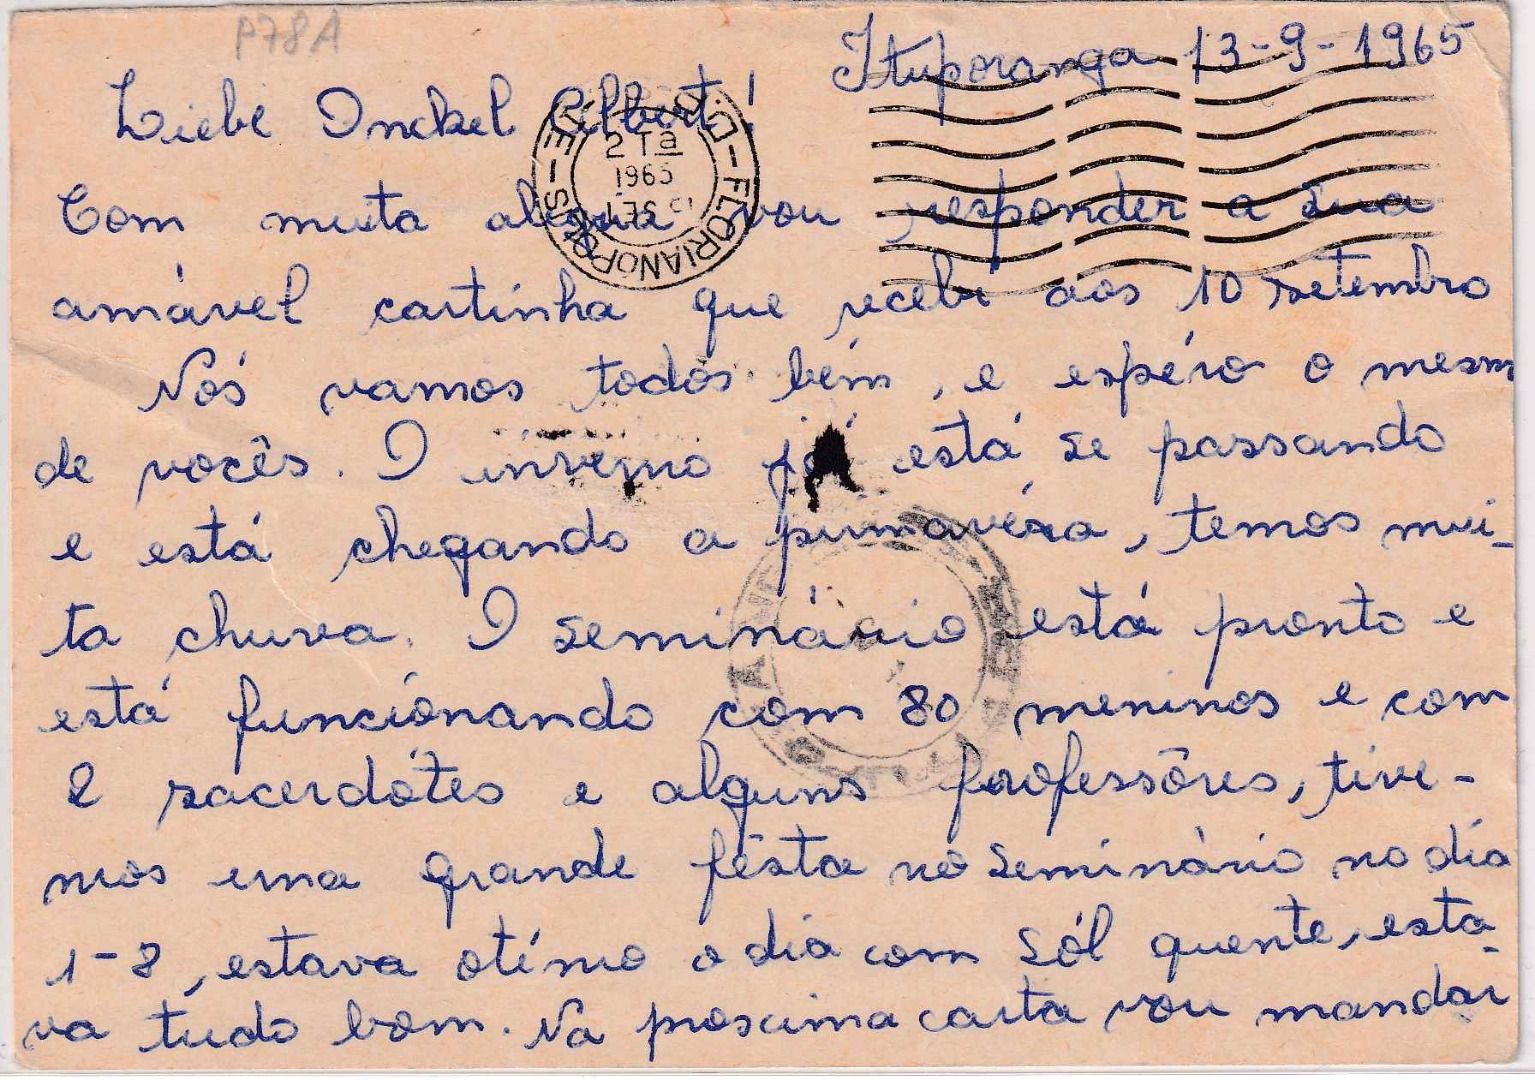 P78A
Ituporanga 13-9-1965
Liebe Onckel Albert!
Com muita alegria vou responder a sua
amável cartinha que recebi aos 10 setembro
Nós vamos todos bém, e espéro o mesm
de vocês. O inverno já está se passando
e está chegando a primavéra, temos mui-
ta chuva. O seminário está pronto e
está funcionando com 80 meninos e com
2 sacerdótes e alguns professôres, tive-
mos uma grande fésta no seminário no dia
1-8, estava otímo o dia com sól quente, esta-
va tudo bom. Na proscima carta vou mandar
FLORIANOPOLIS
2 Ta
1965